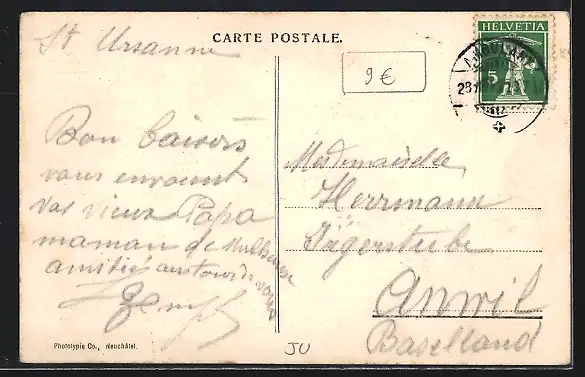 St Ursanne
CARTE POSTALE.
9 €
HELVETIA
5
Bon baisers
vous envoient
vos vieux Papa
maman de Mulhouse
amitiés autour de vous
Mademoiselle
Herrmann
Jägerstube
Anwil
Baselland
Phototypie Co., Neuchâtel.
JU